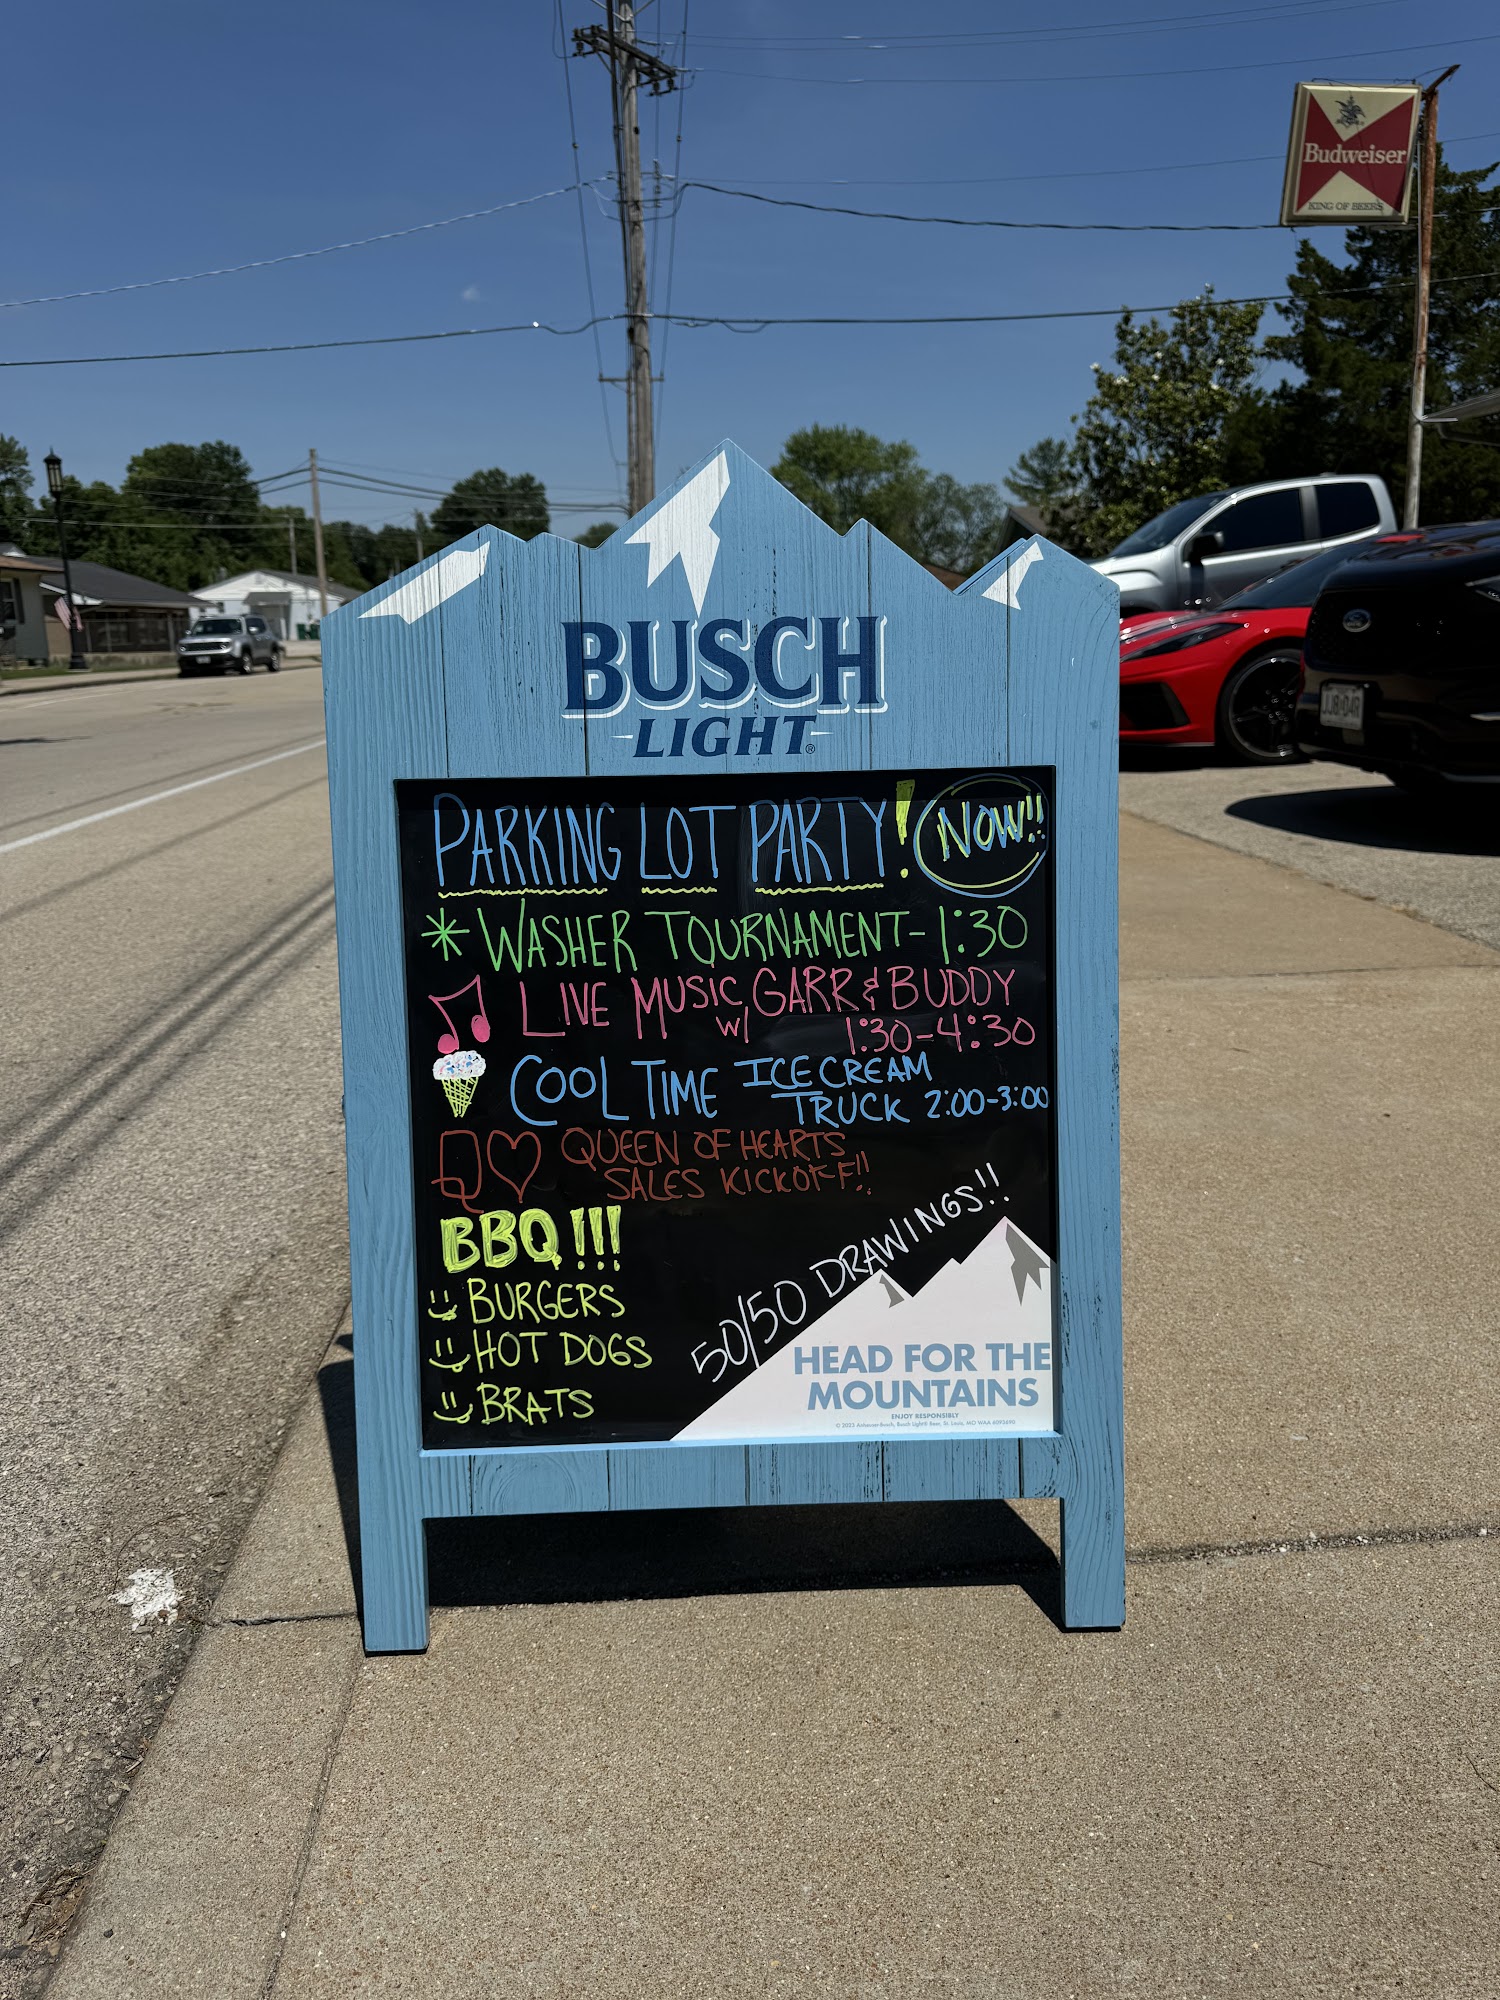 Budweiser
KING OF BEERS
BUSCH
LIGHT®
PARKING LOT PARTY! NOW!!
* WASHER TOURNAMENT - 1:30
LIVE MUSIC w/ GARR & BUDDY
1:30-4:30
COOL TIME ICE CREAM
TRUCK 2:00-3:00
Q♡ QUEEN OF HEARTS
SALES KICKOFF!!
BBQ!!!
BURGERS
HOT DOGS
BRATS
50/50 DRAWINGS!!
HEAD FOR THE
MOUNTAINS
ENJOY RESPONSIBLY
© 2023 Anheuser-Busch, Busch Light® Beer, St. Louis, MO
Ford